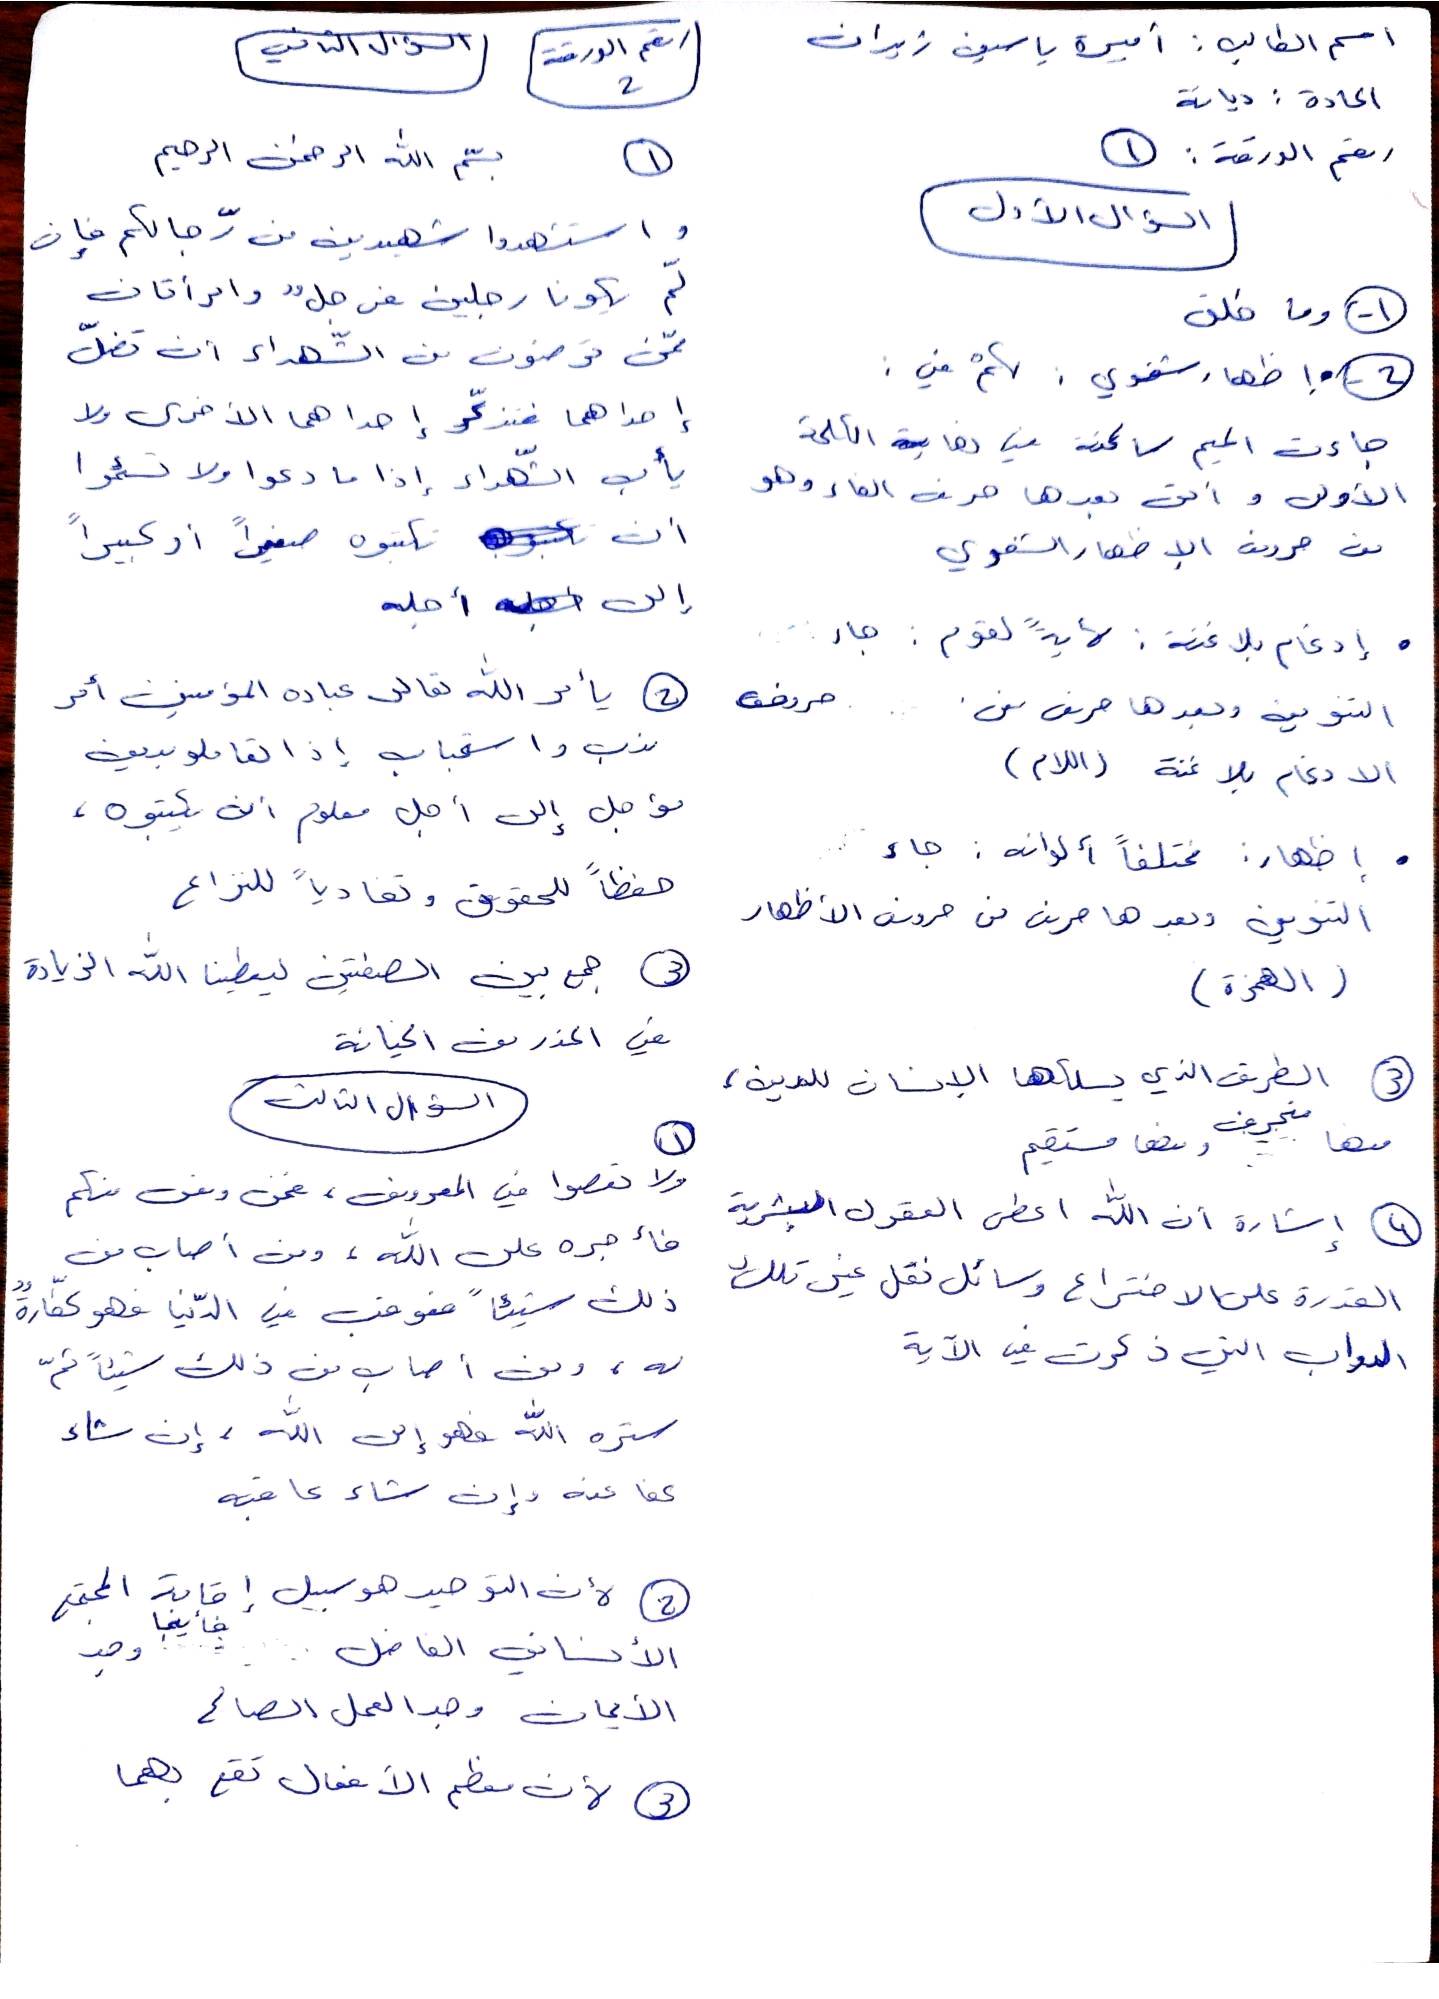 اسم الطالب : أميرة ياسين زيدان
المادة : ديانة
رقم الورقة : ①
السؤال الأول
①- وما خلق
②- • إظهار شفوي : لكمْ في :
جاءت الميم ساكنة في نهاية الكلمة
الأولى و أتى بعدها حرف الفاء وهو
من حروف الإظهار الشفوي
• إدغام بلا غنة : لأيةً لقوم : جاء
التنوين وبعدها حرف من حروف
الادغام بلا غنة (اللام)
• إظهار : مختلفاً ألوانه : جاء
التنوين وبعدها حرف من حروف الأظهار
(الهمزة)
③ الطريق الذي يسلكها الإنسان للدين ،
منها منحرف ومنها مستقيم
④ إشارة أن الله اعطى العقول البشرية
القدرة على الاختراع وسائل نقل غير تلك
الدواب التي ذكرت في الآية
رقم الورقة
2
السؤال الثاني
① بسم الله الرحمن الرحيم
واستشهدوا شهيدين من رّجالكم فإن
لّم يكونا رجلين فرجلٌ وامرأتان
ممّن ترضون من الشّهداء أن تضلّ
إحداهما فتذكّر إحداهما الأخرى ولا
يأب الشّهداء إذا ما دعوا ولا تسئموا
أن تكتبوه صغيراً أو كبيراً
إلى أجله
② يأمر الله تعالى عباده المؤمنين أمر
ندب واستحباب إذا تعاملو بدين
مؤجل إلى أجل معلوم أن يكتبوه ،
حفظاً للحقوق وتفادياً للنزاع
③ جمع بين الصفتين ليعطينا الله الزيادة
في الحذر من الخيانة
السؤال الثالث
①
ولا تعصوا في المعروف ، فمن وفى منكم
فأجره على الله ، ومن أصاب من
ذلك شيئاً فعوقب في الدّنيا فهو كفّارةٌ
له ، ومن أصاب من ذلك شيئاً ثمّ
ستره الله فهو إلى الله ، إن شاء
عفا عنه وإن شاء عاقبه
② لأن التوحيد هو سبيل إقامة المجتمع
الأنساني الفاضل فأينما وجد
الأيمان وجد العمل الصالح
③ لأن معظم الأفعال تقع بهما